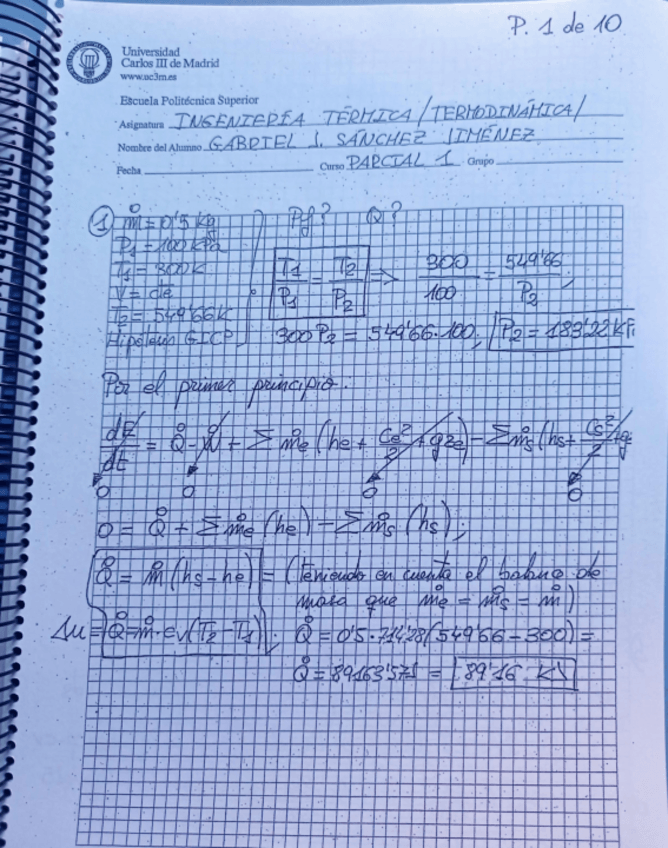 P. 1 de 10
Universidad
Carlos III de Madrid
www.uc3m.es
Escuela Politécnica Superior
Asignatura INGENIERÍA TÉRMICA/TERMODINÁMICA/
Nombre del Alumno GABRIEL J. SÁNCHEZ JIMÉNEZ
Fecha Curso PARCIAL 1 Grupo
① ṁ = 0'5 kg Pf? Q̇?
P₁ = 100 kPa
T₁ = 300 K T₁/P₁ = T₂/P₂ => 300/100 = 549'66/P₂;
V = cte
T₂ = 549'66 K
Hipótesis GICP 300 P₂ = 549'66·100; P₂ = 183'22 kP
Por el primer principio.
dE/dt = Q̇ - Ẇ + Σ ṁe (he + Ce²/2 + gze) - Σ ṁs (hs + Cs²/2 + g
0 0 0 0
0 = Q̇ + Σ ṁe (he) - Σ ṁs (hs);
Q̇ = ṁ (hs - he) = (Teniendo en cuenta el balance de
masa que ṁe = ṁs = ṁ)
Δu = Q̇ = ṁ·cv(T₂ - T₁); Q̇ = 0'5·714'28(549'66 - 300) =
Q̇ = 89163'571 = 89'16 kJ